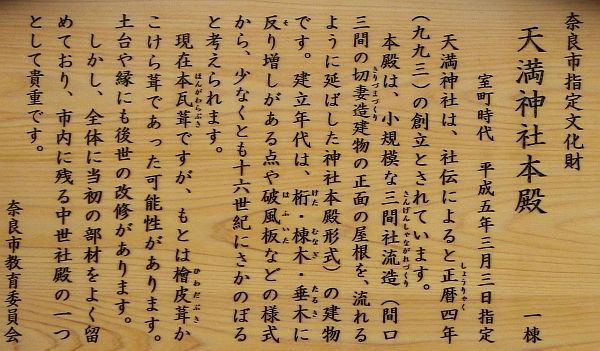 奈良市指定文化財
天満神社本殿 一棟
室町時代 平成五年三月三日指定
天満神社は、社伝によると正暦四年
しょうりゃく
（九九三）の創立とされています。
本殿は、小規模な三間社流造（間口
さんげんしゃながれづくり
三間の切妻造建物の正面の屋根を、流れる
きりづまづくり
ように延ばした神社本殿形式）の建物
です。建立年代は、桁・棟木・垂木に
けた むなぎ たるき
反り増しがある点や破風板などの様式
そ はふいた
から、少なくとも十六世紀にさかのぼる
と考えられます。
現在本瓦葺ですが、もとは檜皮葺か
ほんがわらぶき ひわだぶき
こけら葺であった可能性があります。
土台や縁にも後世の改修があります。
しかし、全体に当初の部材をよく留
めており、市内に残る中世社殿の一つ
として貴重です。
奈良市教育委員会